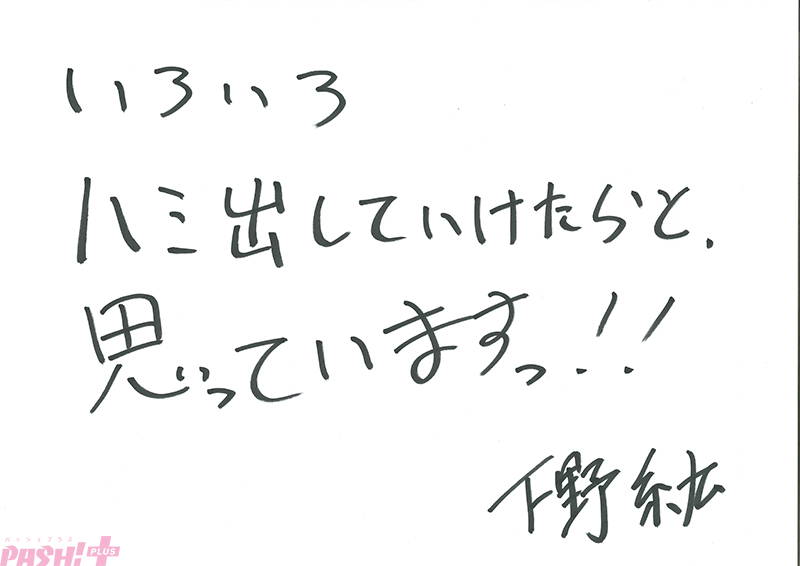 いろいろ
ハミ出していけたらと、
思っていますっ!!
下野紘
パッシュプラス
PASH!+ PLUS